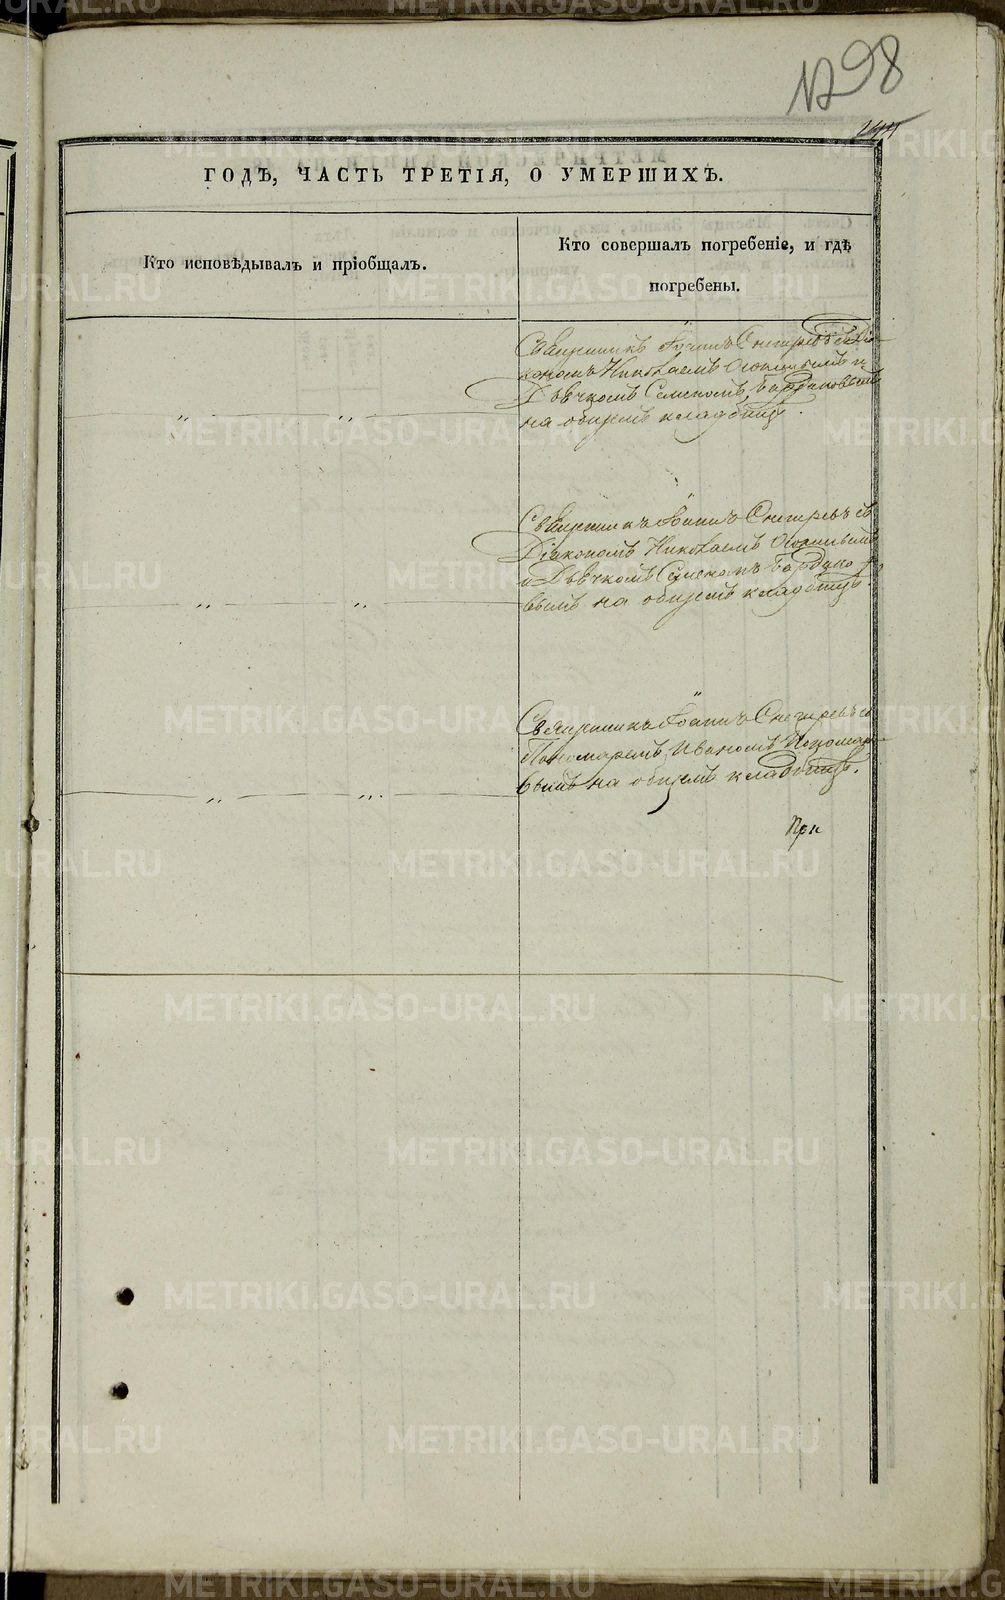 № 98
ГОДѢ, ЧАСТЬ ТРЕТІЯ, О УМЕРШИХЪ.
Кто исповѣдывалъ и пріобщалъ.
Кто совершалъ погребеніе, и гдѣ
погребены.
Священникъ Іоаннъ Снегиревъ съ Діа-
кономъ Николаемъ и
Дьячкомъ Семеномъ
на общемъ кладбищѣ.
Священникъ Іоаннъ Снегиревъ съ
Діякономъ Николаемъ
и Дьячкомъ Семеномъ
вымъ на общемъ кладбищѣ.
Священникъ Іоаннъ Снегиревъ съ
Пономаремъ Иваномъ Пономаре-
вымъ на общемъ кладбищѣ.
При
METRIKI.GASO-URAL.RU